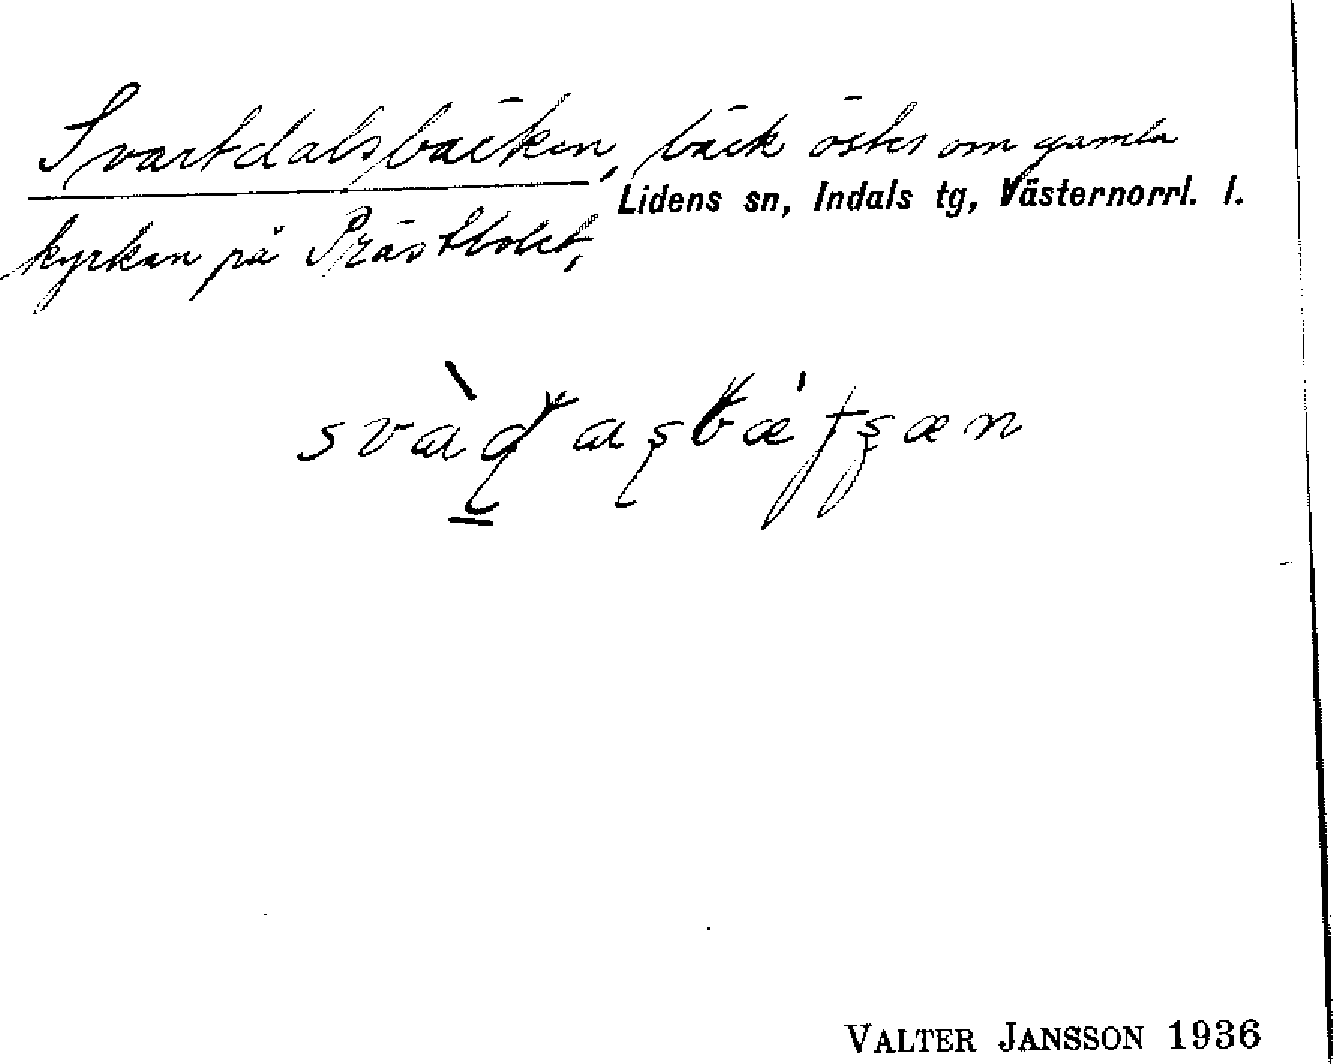 Svartdalsbäcken, bäck öster om gamla
Lidens sn, Indals tg, Västernorrl. l.
kyrkan på Prästbolet.
VALTER JANSSON 1936